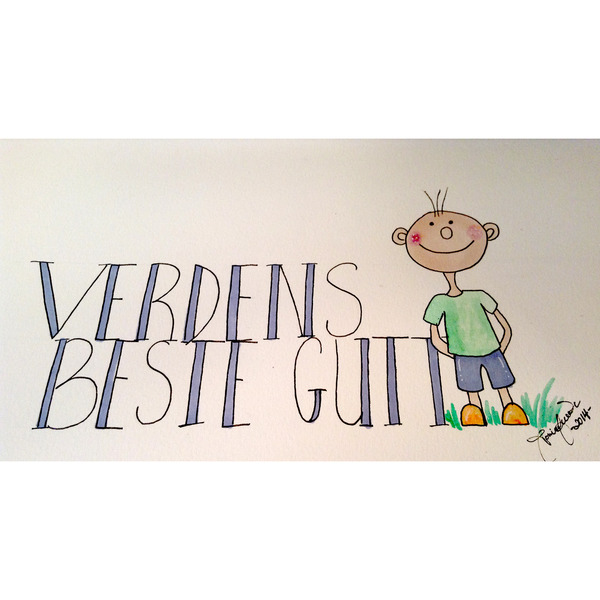 VERDENS
BESTE GUTT
-2014-